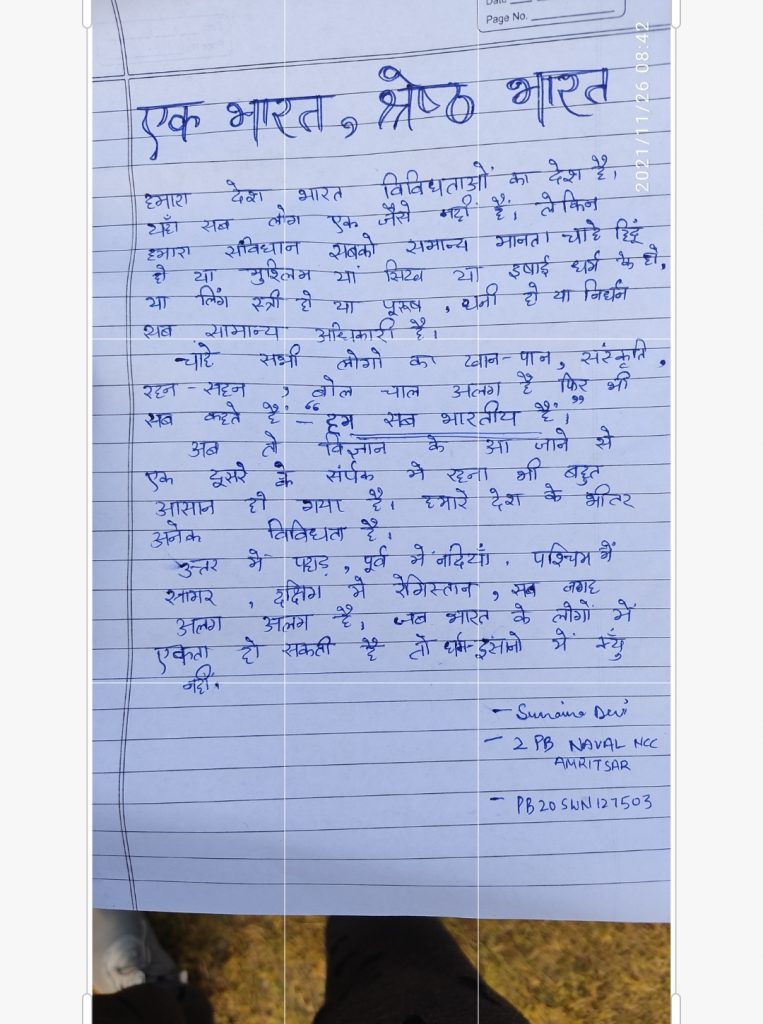 Page No.
2021/11/26 08:42
एक भारत, श्रेष्ठ भारत
हमारा देश भारत विविधताओं का देश है।
यहाँ सब लोग एक जैसे नहीं है, लेकिन
हमारा संविधान सबको समान्य मानता चाहे हिंदू
हो या मुश्लिम यां सिख या इषाई धर्म के हो,
या लिंग स्त्री हो या पुरूष, धनी हो या निर्धन
सब सामान्य अधिकारी है।
चाहे सभी लोगो का खान-पान, संस्कृति,
रहन-सहन, बोल चाल अलग है फिर भी
सब कहते है - "हम सब भारतीय हैं।"
अब तो विज्ञान के आ जाने से
एक दूसरे के संर्पक मे रहना भी बहुत
आसान हो गया है। हमारे देश के भीतर
अनेक विविधता है।
उत्तर में पहाड़, पूर्व में नदियाँ, पश्चिम में
सागर, दक्षिण मे रेगिस्तान, सब जगह
अलग अलग है, जब भारत के लोगों में
एकता हो सकती है तो धर्म-इंसानो में क्यूँ
नहीं.
- Sunaina Devi
- 2 PB NAVAL NCC
AMRITSAR
- PB20SWN127503